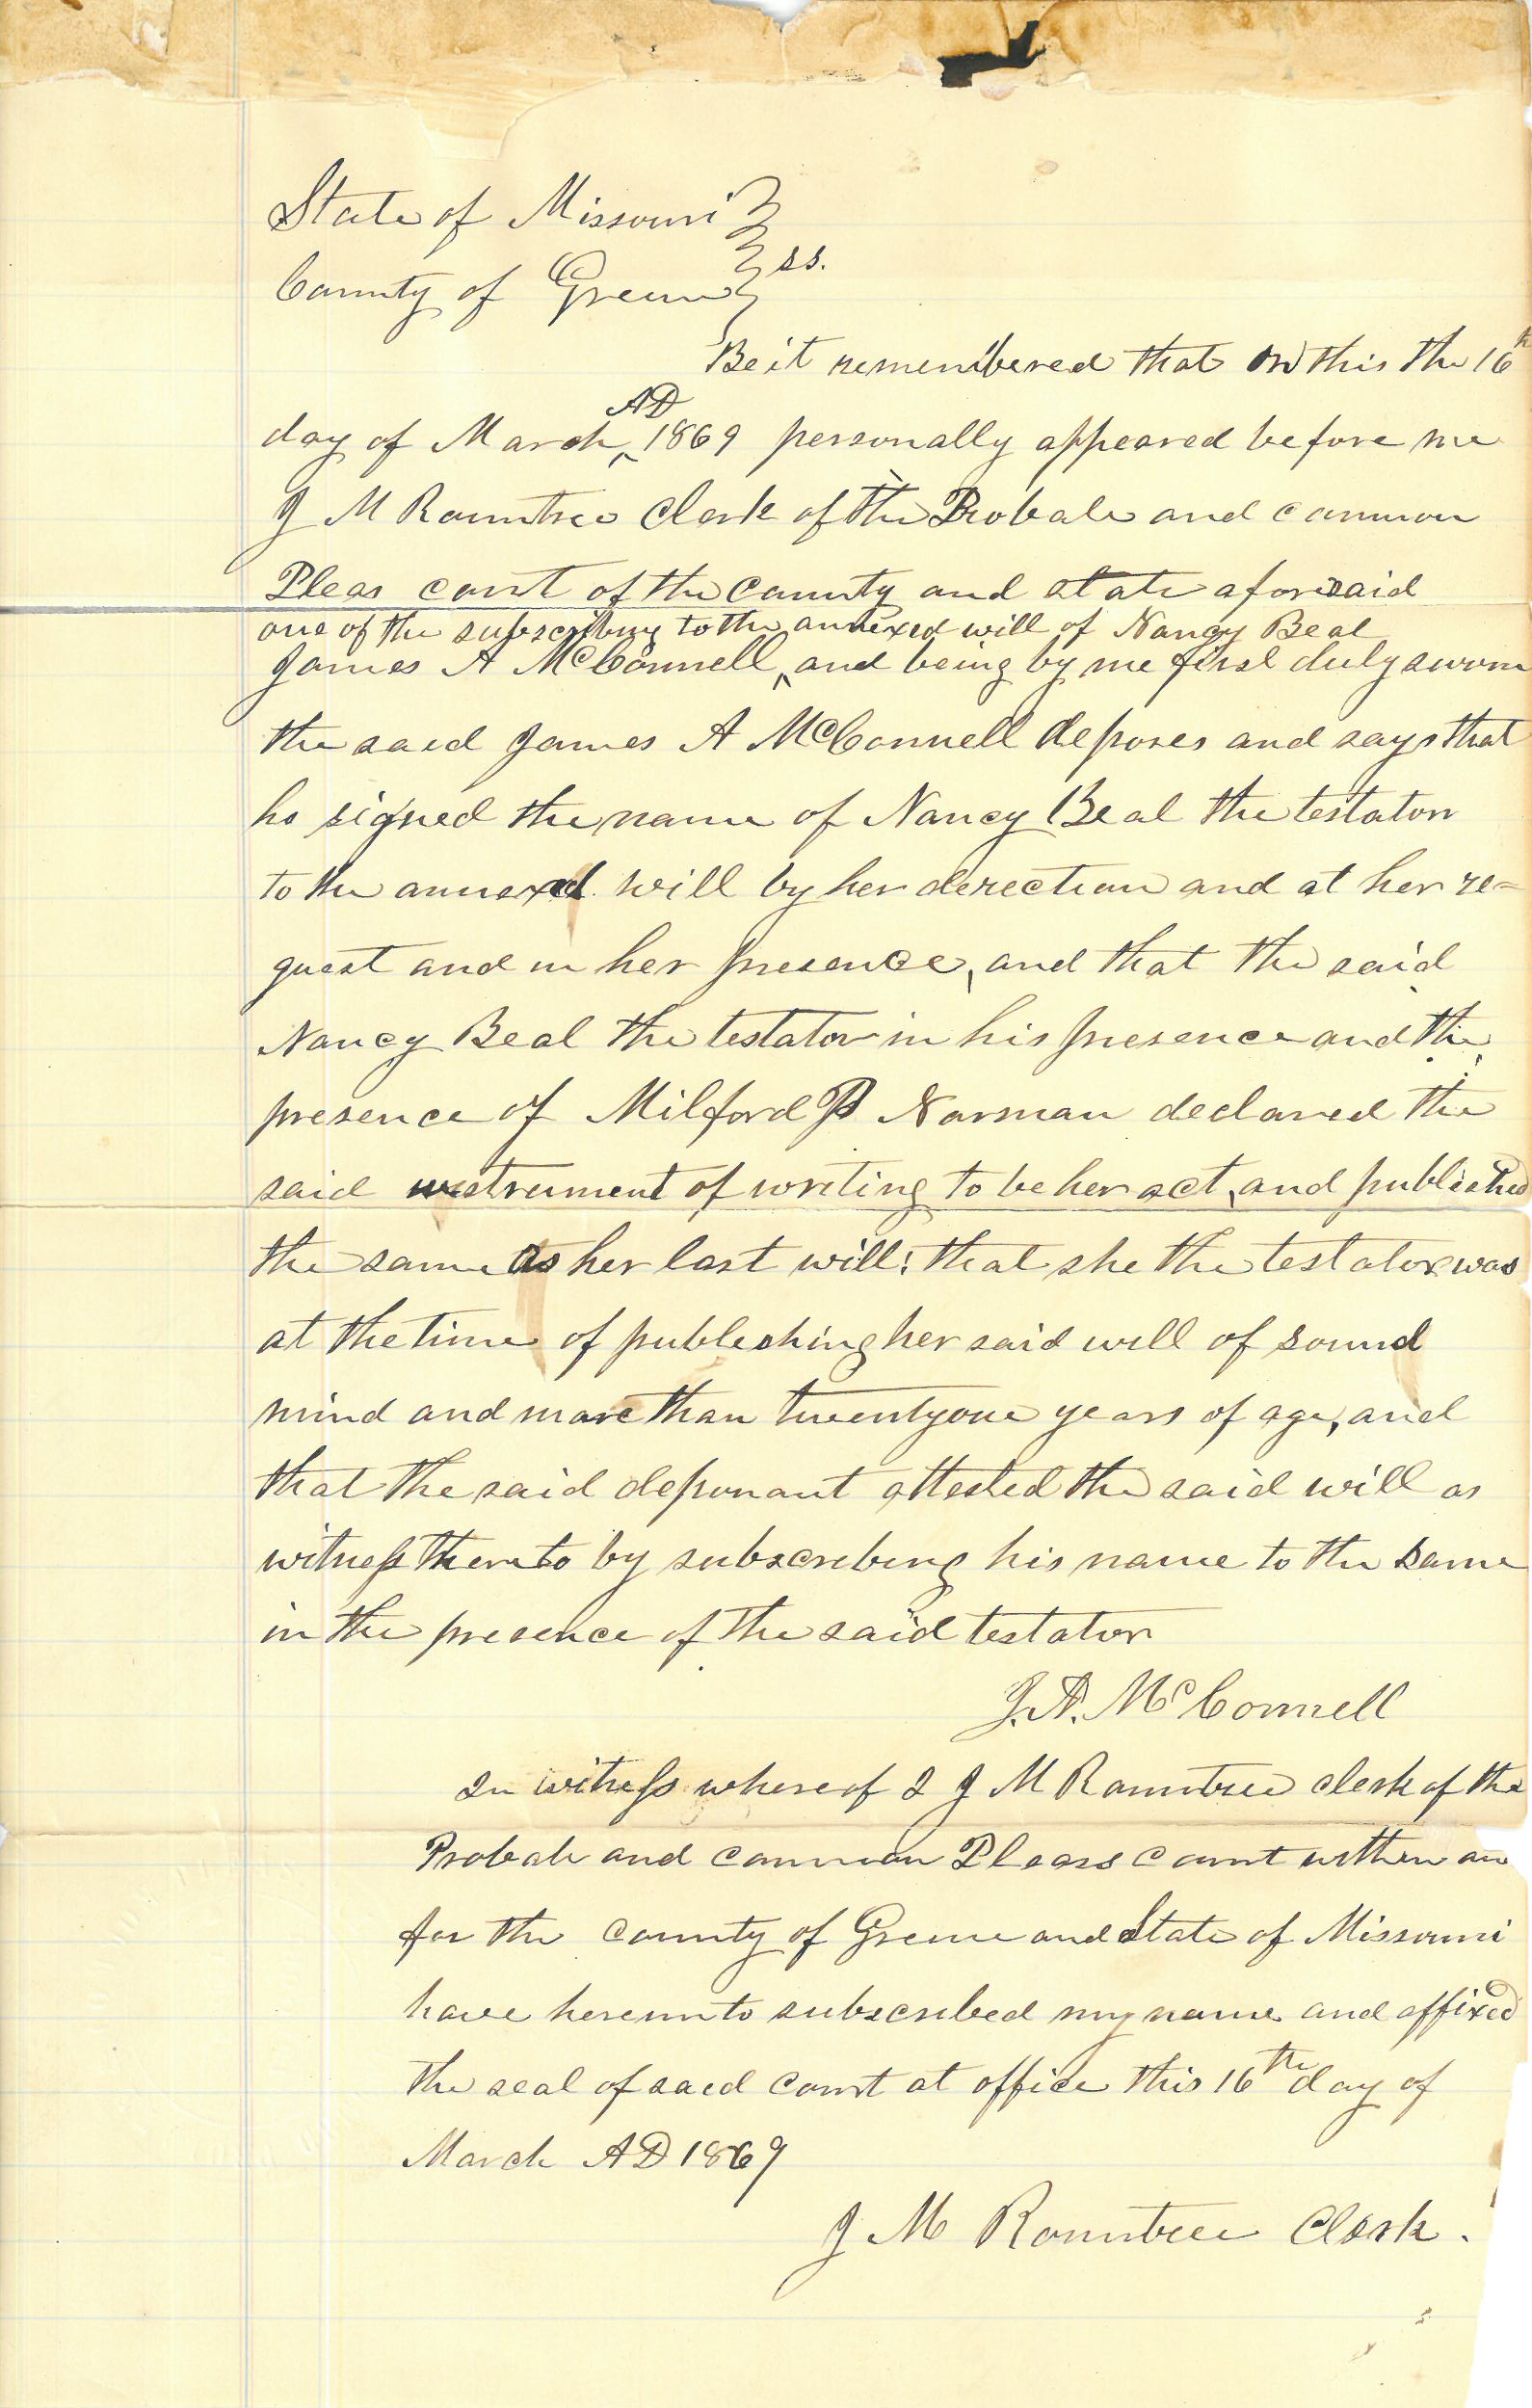 State of Missouri }
County of Greene } ss.
Be it remembered that on this the 16th
day of March ^AD 1869 personally appeared before me
J M Rountree Clerk of the Probate and common
Pleas court of the County and state aforesaid
one of the subscribing to the annexed will of Nancy Beal
James A McConnell ^ and being by me first duly sworn
the said James A McConnell deposes and says that
he signed the name of Nancy Beal the testator
to the annexed will by her derection and at her re=
quest and in her presence, and that the said
Nancy Beal the testator in his presence and the
presence of Milford P Norman declared the
said instrument of writing to be her act, and published
the same as her last will; that she the testator was
at the time of publeshing her said will of sound
mind and more than twentyone years of age, and
that the said deponant attested the said will as
witness thereto by subscribeing his name to the same
in the presence of the said testator
J. A. McConnell
In witness whereof I J M Rountree clerk of the
Probate and common Pleas Court within an
for the county of Greene and State of Missouri
have hereunto subscribed my name and affixed
the seal of said Court at office this 16th day of
March AD 1869
J M Rountree Clerk.